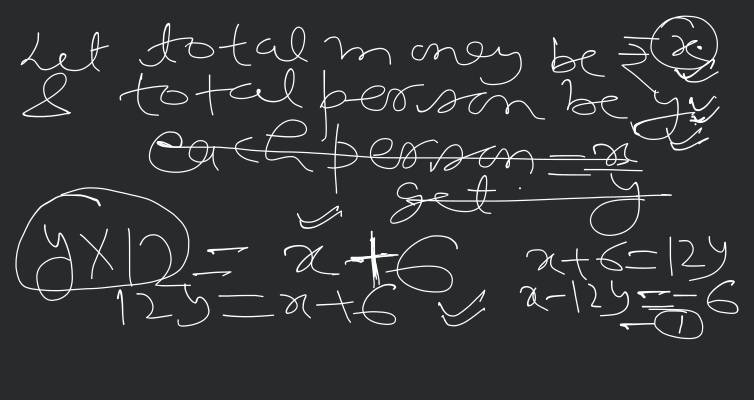 Let total money be = x
& total person be y
each person = x
get y
y×12 = x+6
12y = x+6
x+6=12y
x-12y=-6
-①